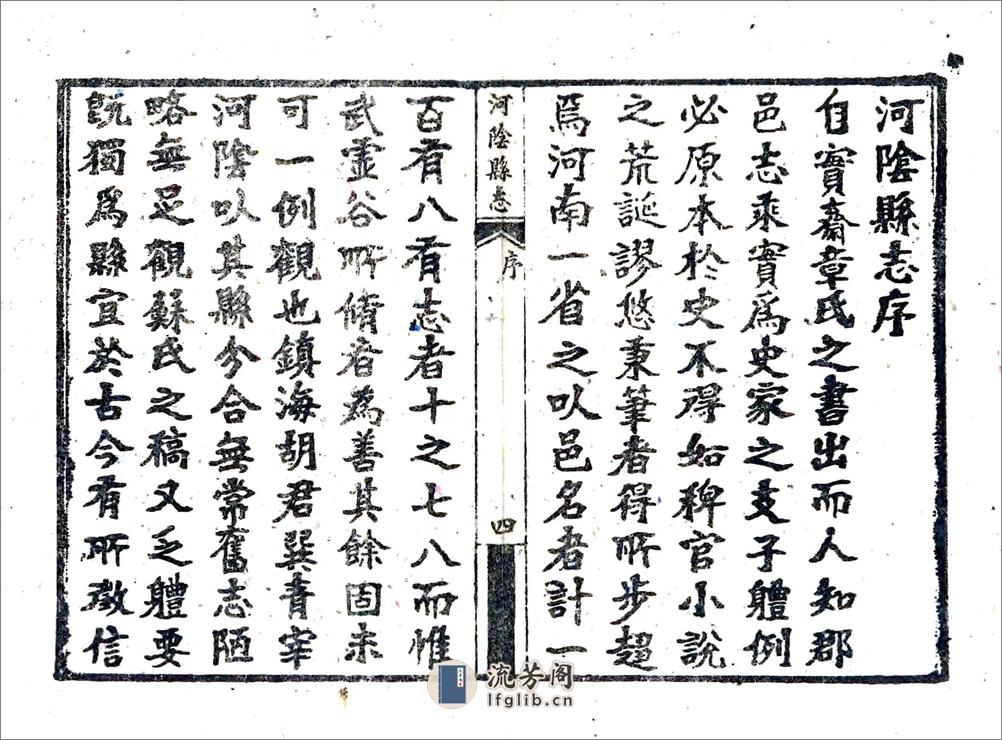 河陰縣志序
自實齋章氏之書出而人知郡
邑志乘實爲史家之支子體例
必原本於史不得如稗官小說
之荒誕謬悠秉筆者得所步趨
焉河南一省之以邑名者計一
河陰縣志
序
四
百有八有志者十之七八而惟
武虛谷所脩者為善其餘固未
可一例觀也鎮海胡君巽青宰
河陰以其縣分合無常舊志陋
略無足觀蘇氏之稿又乏體要
既獨爲縣宜於古今有所徵信
流芳阁
lfglib.cn